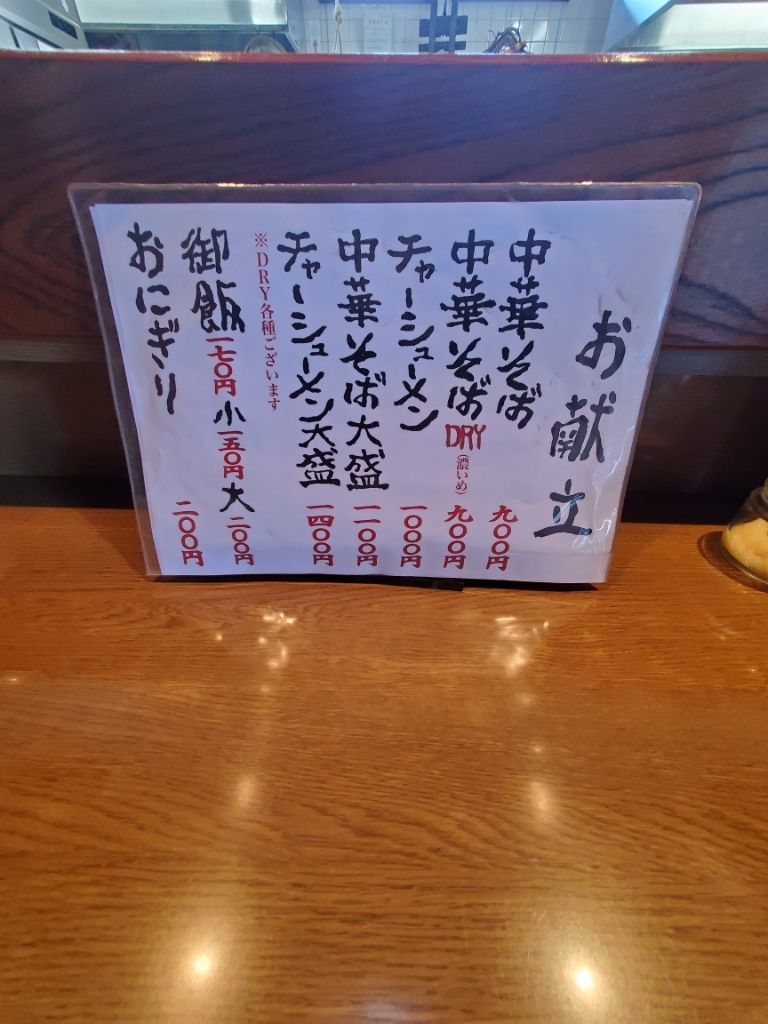 お献立
中華そば 九〇〇円
中華そばDRY(濃いめ) 九〇〇円
チャーシューメン 一〇〇〇円
中華そば大盛 一一〇〇円
チャーシューメン大盛 一四〇〇円
※DRY各種ございます
御飯 一七〇円 小一五〇円 大二〇〇円
おにぎり 二〇〇円